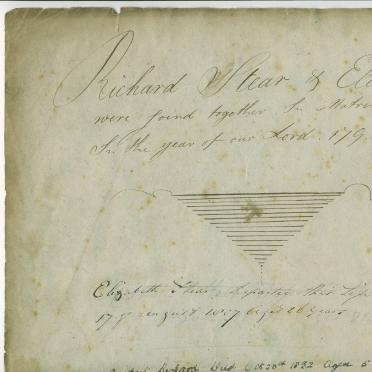 Richard Stear & El
were joind together In Matri
In the year of our Lord 179
Elizabeth Stear departed this Life
17 of august 1817 Aged 26 years
Died Oct 28th 1832 Aged 5